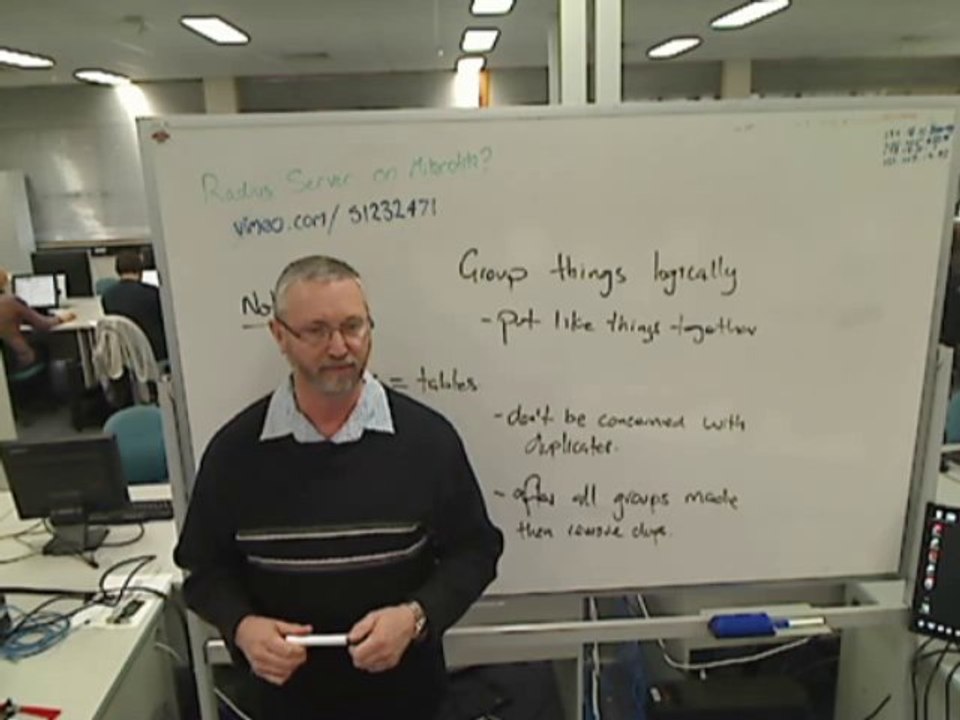 Radius Server on Mikrotik?
vimeo.com/ 51232471
Group things logically
- put like things together
= tables
- don't be concerned with
duplicates.
- after all groups made
then remove dups.